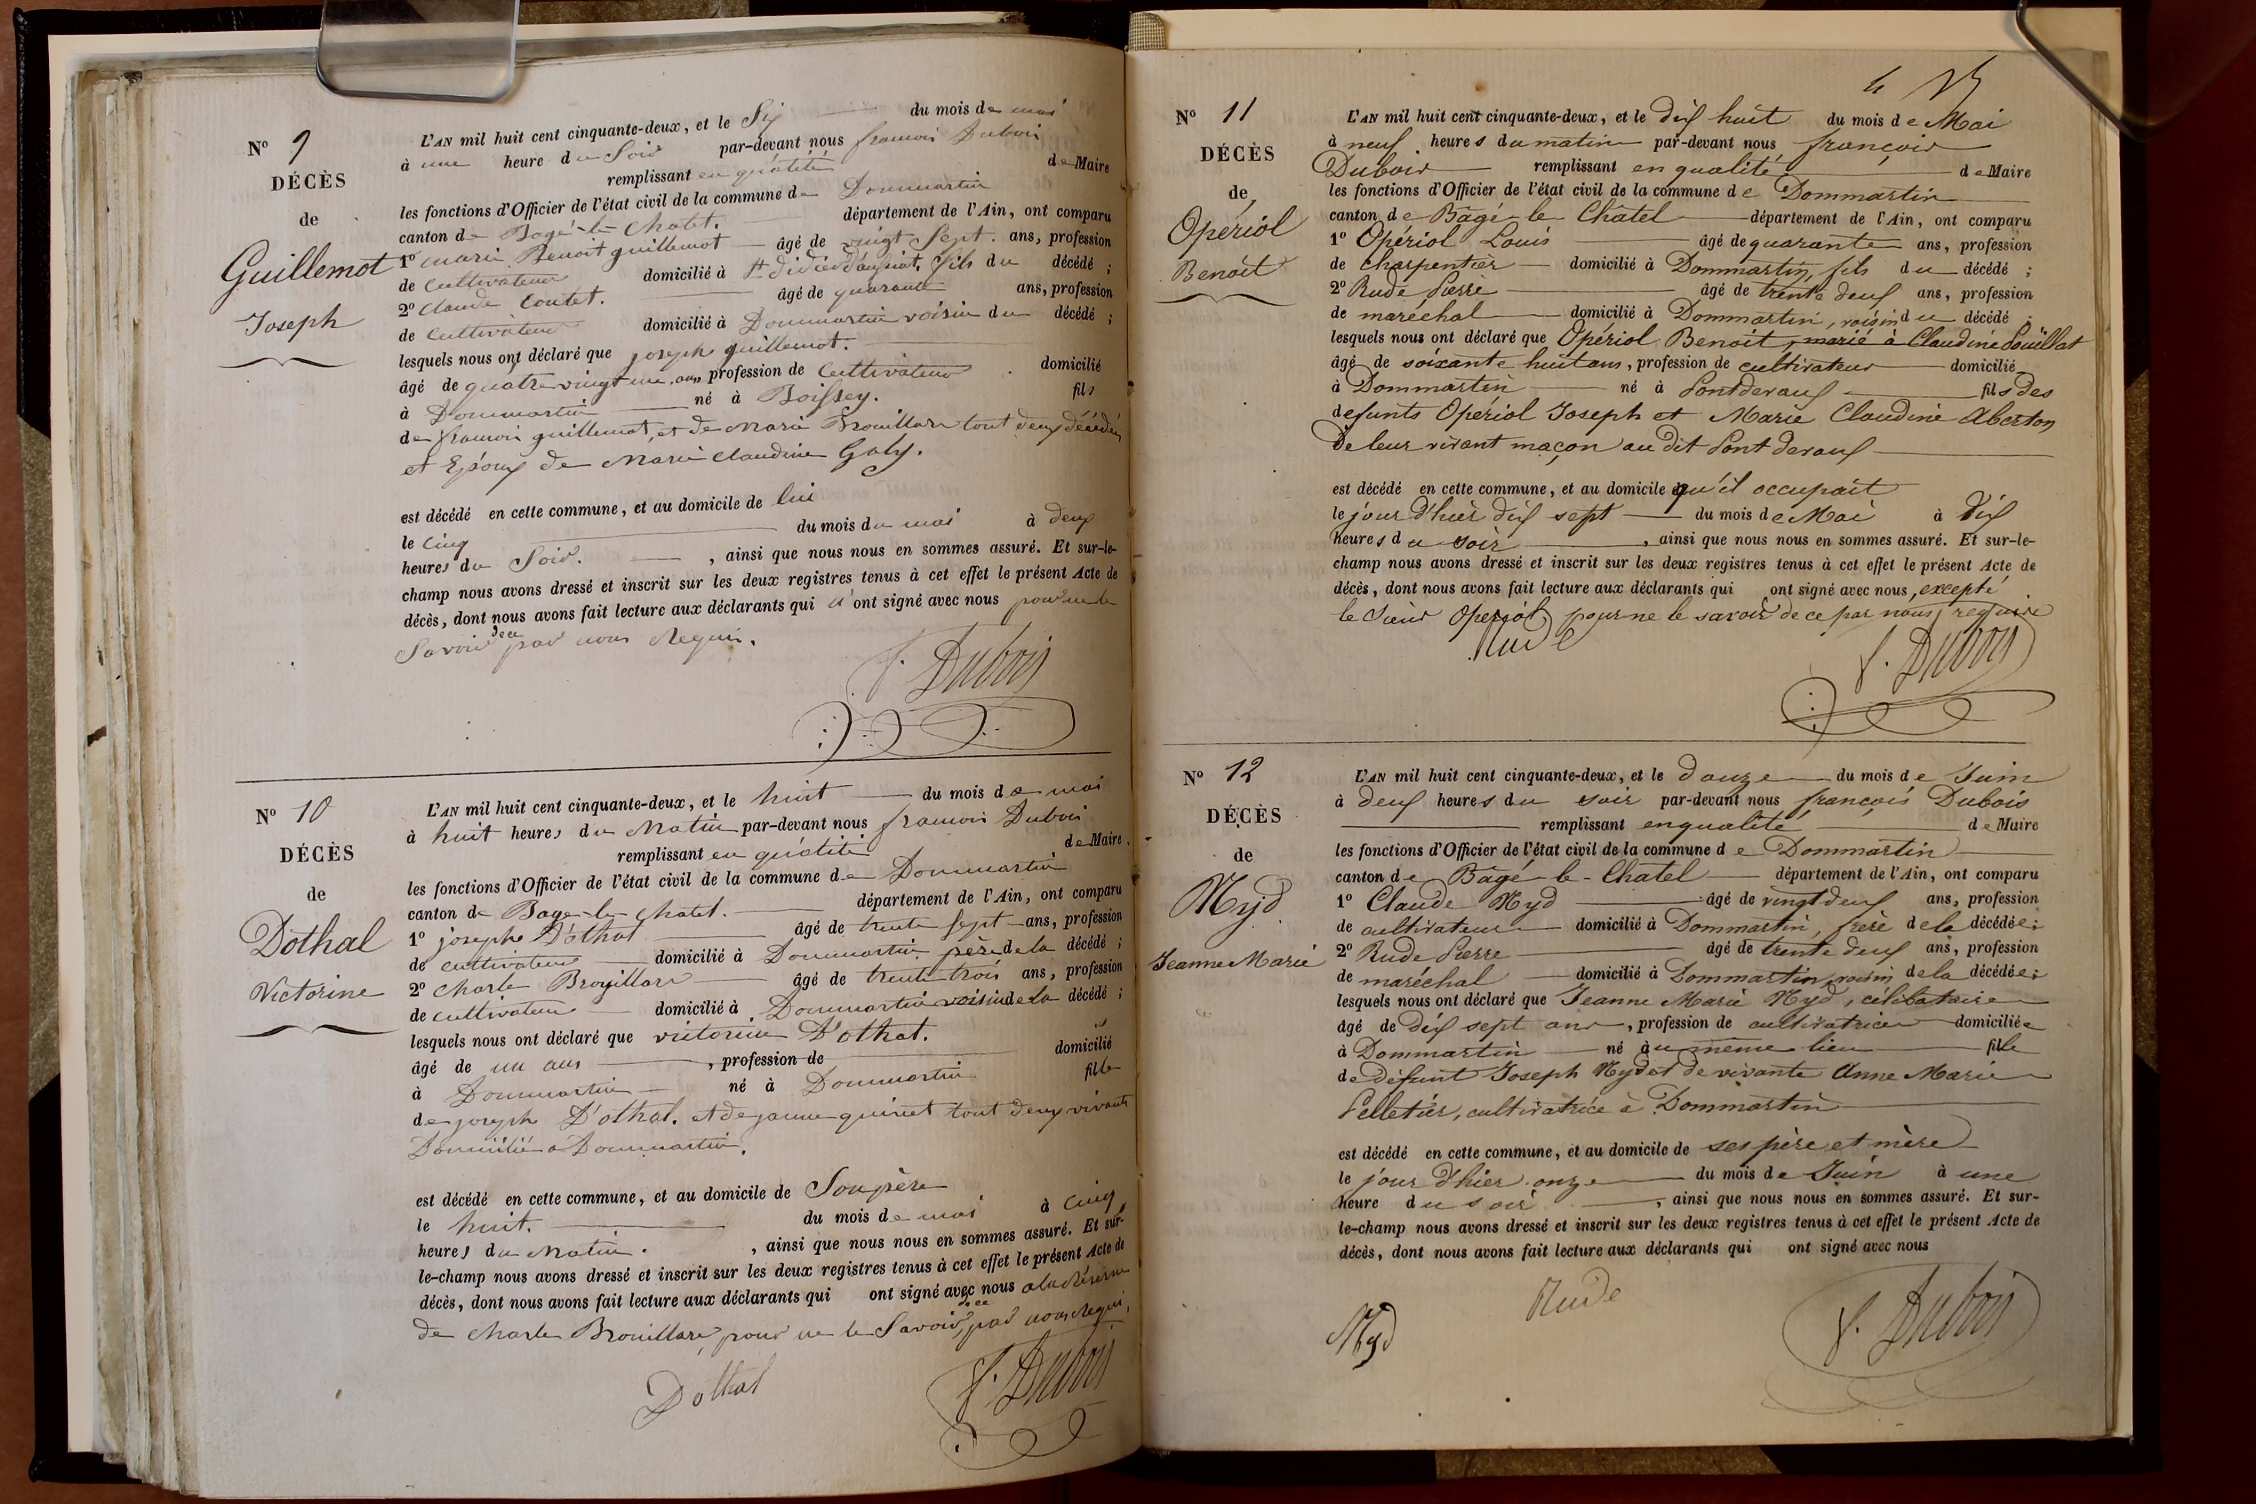 N° 9
DÉCÈS
de
Guillemot
Joseph
L'AN mil huit cent cinquante-deux, et le Six du mois de mai
à une heure du Soir par-devant nous francois Dubois
remplissant en qualité de Maire
les fonctions d'Officier de l'état civil de la commune de Dommartin
canton de Bagé-le-Chatel. département de l'Ain, ont comparu
1° marie Benoit guillemot âgé de vingt Sept. ans, profession
de cultivateur domicilié à St didier d'aussiat, fils du décédé ;
2° claude Coutet. âgé de quarante ans, profession
de cultivateur domicilié à Dommartin voisin du décédé ;
lesquels nous ont déclaré que joseph guillemot.
âgé de quatre vingt un ans profession de Cultivateur domicilié
à Dommartin né à Boissey. fils
de francois guillemot, et de Marie Brouillard tout deux décédés
et Epoux de Marie Claudine Galy.
est décédé en cette commune, et au domicile de lui
le Cinq du mois de mai à deux
heures du Soir. , ainsi que nous nous en sommes assuré. Et sur-le-
champ nous avons dressé et inscrit sur les deux registres tenus à cet effet le présent Acte de
décès, dont nous avons fait lecture aux déclarants qui n'ont signé avec nous pour ne le
Savoir dece par nous Requis.
f. Dubois
N° 10
DÉCÈS
de
Dothal
Victorine
L'AN mil huit cent cinquante-deux, et le huit du mois de mai
à huit heures du Matin par-devant nous francois Dubois
remplissant en qualité de Maire.
les fonctions d'Officier de l'état civil de la commune de Dommartin
canton de Bagé-le-Chatel. département de l'Ain, ont comparu
1° joseph D'othal âgé de trente sept ans, profession
de cultivateur domicilié à Dommartin père de la décédé ;
2° Charle Brouillard âgé de trente trois ans, profession
de cultivateur domicilié à Dommartin voisin de la décédé ;
lesquels nous ont déclaré que victorine D'othal.
âgé de un ans , profession de domicilié
à Dommartin né à Dommartin fille
de joseph D'othal. et de jeanne guinet tout deux vivants
Domicilié à Dommartin.
est décédé en cette commune, et au domicile de Son père
le huit. du mois de mai à Cinq
heures du Matin. , ainsi que nous nous en sommes assuré. Et sur-
le-champ nous avons dressé et inscrit sur les deux registres tenus à cet effet le présent Acte de
décès, dont nous avons fait lecture aux déclarants qui ont signé avec nous a la Réserve
de Charle Brouillard, pour ne le Savoir, dece par nous Requi.
Dothal
f. Dubois
N° 11
DÉCÈS
de
Opériol
Benoit
L'AN mil huit cent cinquante-deux, et le dix huit du mois de Mai
à neuf heures du matin par-devant nous françois
Dubois remplissant en qualité de Maire
les fonctions d'Officier de l'état civil de la commune de Dommartin
canton de Bâgé-le Châtel département de l'Ain, ont comparu
1° Opériol Louis âgé de quarante ans, profession
de charpentier domicilié à Dommartin, fils du décédé ;
2° Rude Pierre âgé de trente deux ans, profession
de maréchal domicilié à Dommartin, voisin du décédé ;
lesquels nous ont déclaré que Opériol Benoit, marié à Claudine Louillat
âgé de soixante huit ans, profession de cultivateur domicilié
à Dommartin né à Pontdevaux fils des
defunts Opériol Joseph et Marie Claudine Aberton
De leur vivant maçon au dit Pont devaux
est décédé en cette commune, et au domicile qu'il occupait
le jour d'hier dix sept du mois de Mai à dix
heures du soir , ainsi que nous nous en sommes assuré. Et sur-le-
champ nous avons dressé et inscrit sur les deux registres tenus à cet effet le présent Acte de
décès, dont nous avons fait lecture aux déclarants qui ont signé avec nous, excepté
le sieur Operiol pour ne le savoir de ce par nous requis
Rude
f. Dubois
N° 12
DÉCÈS
de
Myd
Jeanne Marie
L'AN mil huit cent cinquante-deux, et le douze du mois de Juin
à deux heures du soir par-devant nous françois Dubois
remplissant en qualité de Maire
les fonctions d'Officier de l'état civil de la commune de Dommartin
canton de Bagé-le-Chatel département de l'Ain, ont comparu
1° Claude Myd âgé de vingt deux ans, profession
de cultivateur domicilié à Dommartin, frère de la décédée ;
2° Rude Pierre âgé de trente deux ans, profession
de maréchal domicilié à Dommartin, voisin de la décédée ;
lesquels nous ont déclaré que Jeanne Marie Myd, célibataire
âgé de dix sept ans, profession de cultivatrice domiciliée
à Dommartin né au même lieu fille
de défunt Joseph Myd et de vivante Anne Marie
Pelletier, cultivatrice à Dommartin
est décédé en cette commune, et au domicile de ses père et mère
le jour d'hier onze du mois de Juin à une
heure du soir , ainsi que nous nous en sommes assuré. Et sur-
le-champ nous avons dressé et inscrit sur les deux registres tenus à cet effet le présent Acte de
décès, dont nous avons fait lecture aux déclarants qui ont signé avec nous
Rude
Myd
f. Dubois